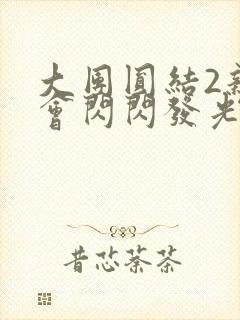 大團圓結2
會閃閃發光
昔芯萘茶